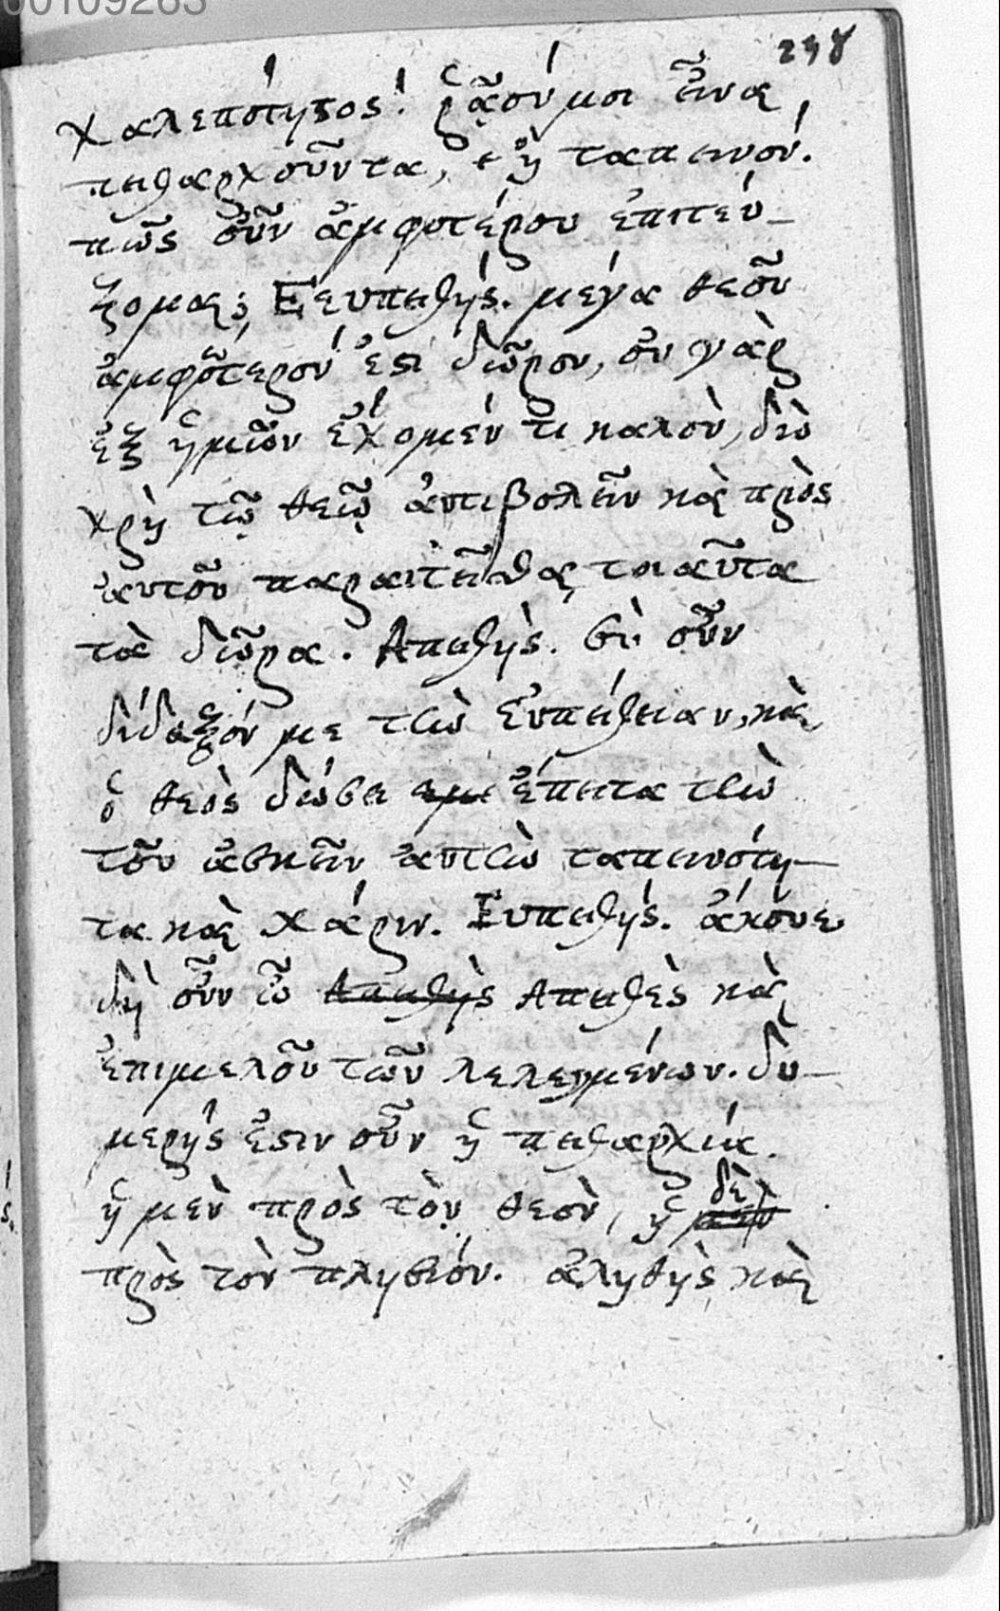 00109283
238
χαλεπότητος! ῥᾷόν μοι εἶναι
πειθαρχοῦντα, ἢ ταπεινόν.
πῶς οὖν ἀμφοτέρου ἐπιτεύ-
ξομαι; Εὐπειθής. μέγα θεοῦ
ἀμφότερόν ἐστι δῶρον, οὐ γὰρ
ἐξ ἡμῶν ἔχομέν τι καλὸν, διὸ
χρὴ τῷ θεῷ ἀντιβολεῖν καὶ πρὸς
αὐτοῦ παραιτεῖσθαι τοιαῦτα
τὰ δῶρα. Απειθὴς. σὺ οὖν
δίδαξόν με τὴν εὐπείθειαν, καὶ
ὁ θεὸς δώσει ἐμὲ ἔπειτα τὴν
τοῦ ἀσκεῖν αὐτὴν ταπεινότη-
τα καὶ χάριν. Ευπειθής. ἄκουε
δὴ οὖν ὦ Απειθὴς Απειθὲς καὶ
ἐπιμελοῦ τῶν λελεγμένων. δυ-
μερής ἐστιν οὖν ἡ πειθαρχία.
ἡ μὲν πρὸς τὸν θεὸν, ἡ μὲν δὲ
πρὸς τὸν πλησίον. ἀληθὴς καὶ